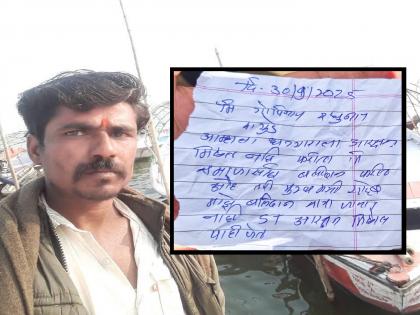 दि. 30/9/2025
मि गोपिनाथ
आम्हाला आरक्षण
मिळत नाही करीता मि
समाजासाठी बलीदान करित
आहे तरी मुख्यमंत्री साहेब
माझे बलिदान जाणार
नाही ST आरक्षण मिळाल
पाहीजेत